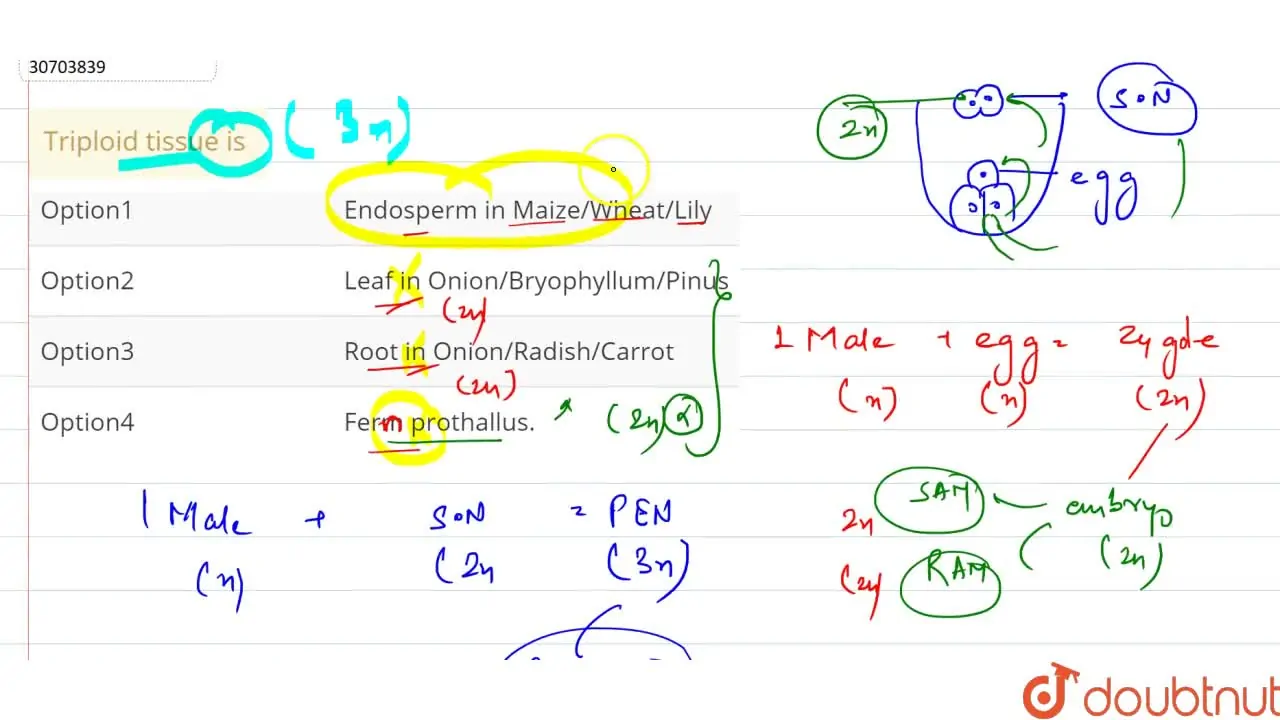 30703839
Triploid tissue is (3n)
Option1 Endosperm in Maize/Wheat/Lily
Option2 Leaf in Onion/Bryophyllum/Pinus
(2n)
Option3 Root in Onion/Radish/Carrot
(2n)
Option4 Fern prothallus. (2n)
1 Male + SON = PEN
(n) (2n (3n)
2n
SON
egg
1 Male + egg = zygote
(n) (n) (2n)
2n SAM embryo
(2n)
(2n) RAM
doubtnut